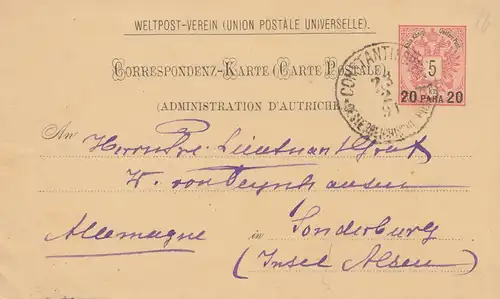 WELTPOST-VEREIN (UNION POSTALE UNIVERSELLE).
CORRESPONDENZ-KARTE (CARTE POSTALE)
(ADMINISTRATION D'AUTRICHE
5
20 PARA 20
CONSTANTINOPEL
An Herrn Pr. Lieutnant Graf
W. von
Allemagne in Sonderburg
(Insel Alsen)